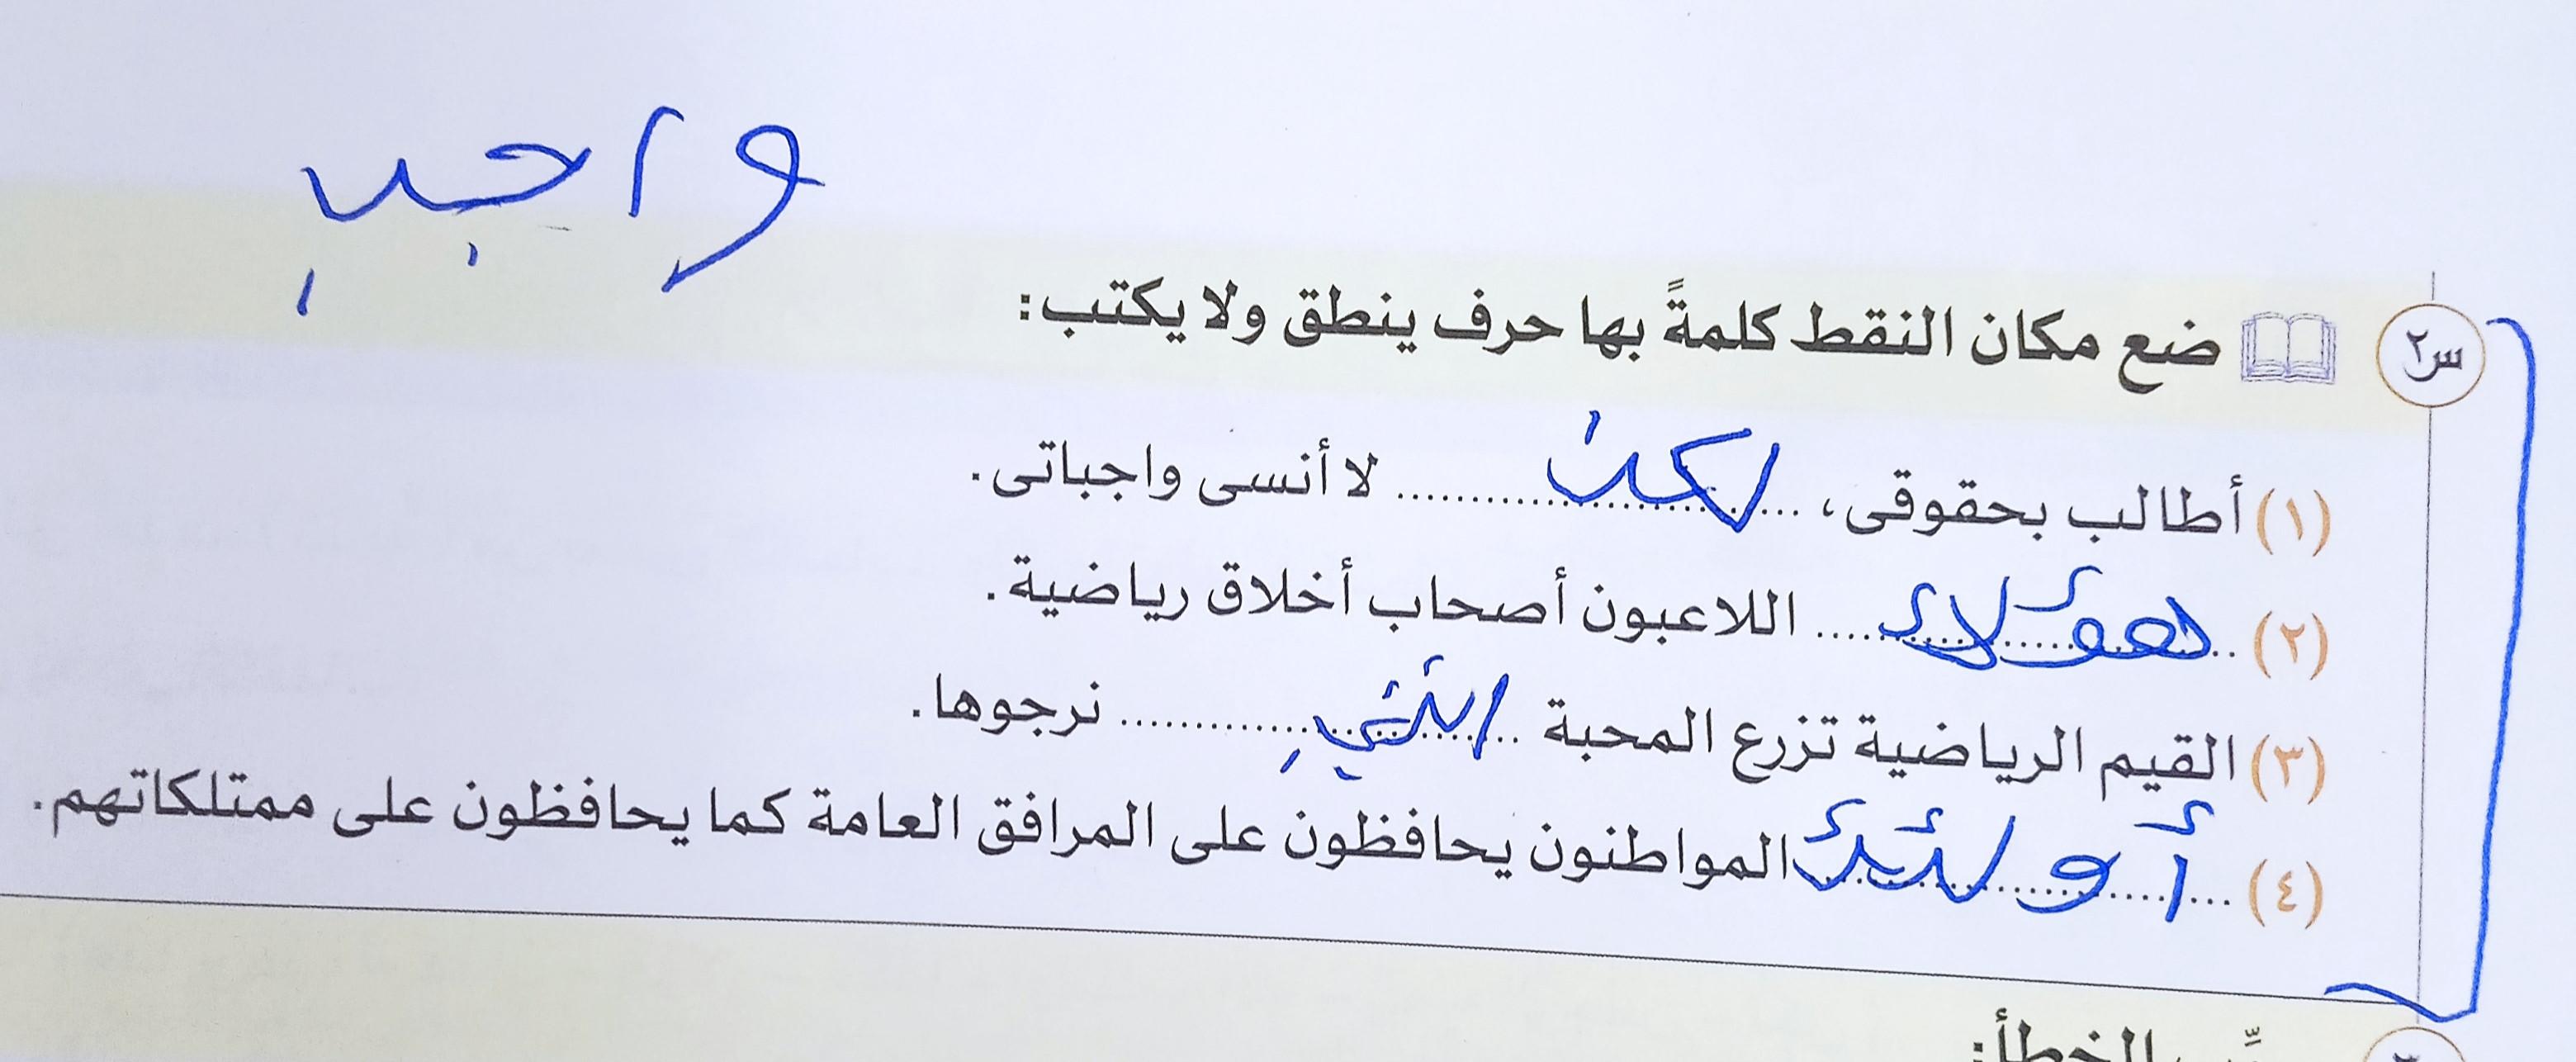 واجب
س٢ ضع مكان النقط كلمةً بها حرف ينطق ولا يكتب:
(١) أطالب بحقوقى، لكن لا أنسى واجباتى.
(٢) هؤلاء اللاعبون أصحاب أخلاق رياضية.
(٣) القيم الرياضية تزرع المحبة التى نرجوها.
(٤) أولئك المواطنون يحافظون على المرافق العامة كما يحافظون على ممتلكاتهم.
الخطأ: